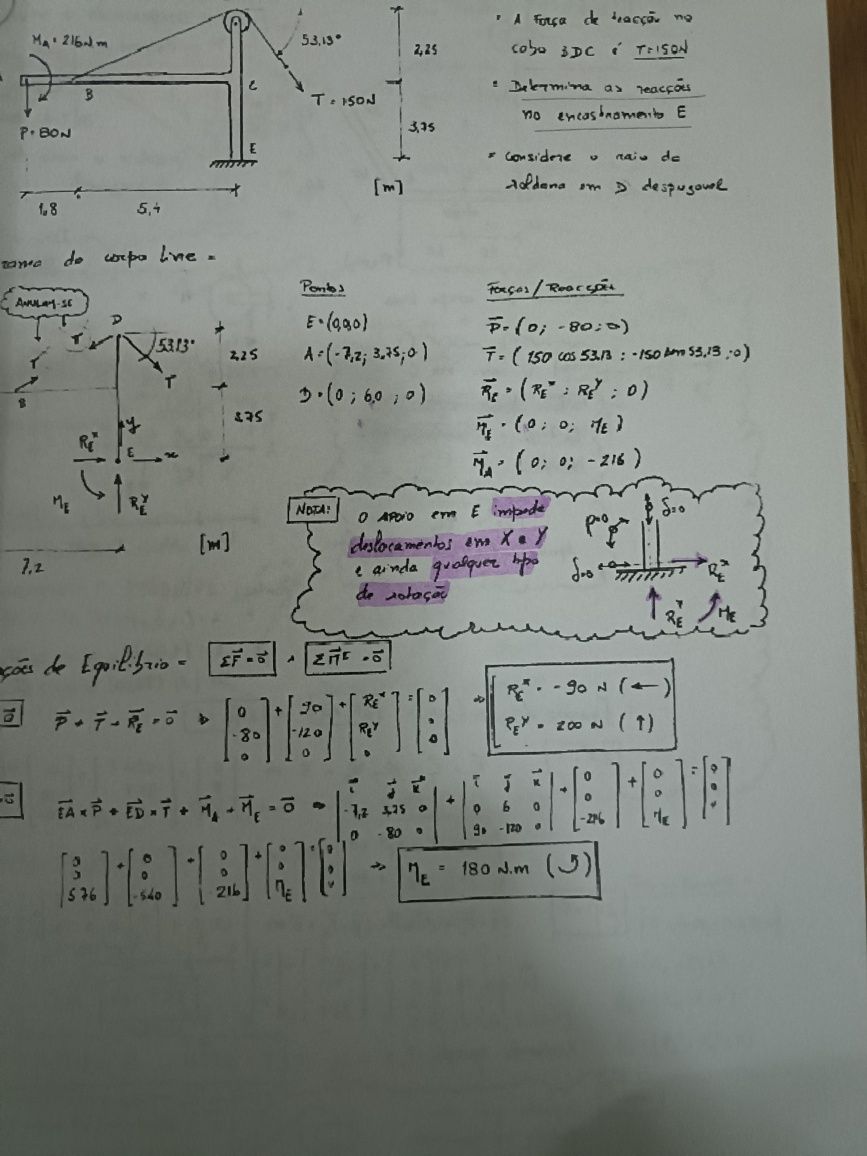 M_A = 216 N.m
53,13°
T = 150N
B
C
E
P = 80N
2,25
3,75
[m]
1,8
5,4
• A Força de tracção no
cabo BDC é T=150N
• Determina as reacções
no encastramento E
• Considere o raio da
roldana em D desprezavel
do corpo livre =
ANULAM-SE
T
T
T
D
53,13°
T
B
2,25
3,75
y
R_E^x
E
x
M_E
R_E^y
[m]
7,2
Pontos
E = (0,0,0)
A = (-7,2; 3,75; 0)
D = (0; 6,0; 0)
Forças/Reacções
P = (0; -80; 0)
T = (150 cos 53,13 ; -150 sen 53,13 ; 0)
R_E = (R_E^x ; R_E^y ; 0)
M_E = (0; 0; M_E)
M_A = (0; 0; -216)
NOTA: O APOIO em E impede
deslocamentos em X e Y
e ainda qualquer tipo
de rotação
δ=0
δ=0
R_E^x
R_E^y
M_E
de Equilibrio = ΣF = 0 ΣM^E = 0
P + T + R_E = 0 ⇒ [0 -80 0] + [90 -120 0] + [R_E^x R_E^y 0] = [0 0 0] ⇒ R_E^x = -90 N (←)
R_E^y = 200 N (↑)
EA × P + ED × T + M_A + M_E = 0 ⇒ |i j k; -7,2 3,75 0; 0 -80 0| + |i j k; 0 6 0; 90 -120 0| + [0 0 -216] + [0 0 M_E] = [0 0 0]
[0 0 576] + [0 0 -540] + [0 0 216] + [0 0 M_E] = [0 0 0] ⇒ M_E = 180 N.m (↺)